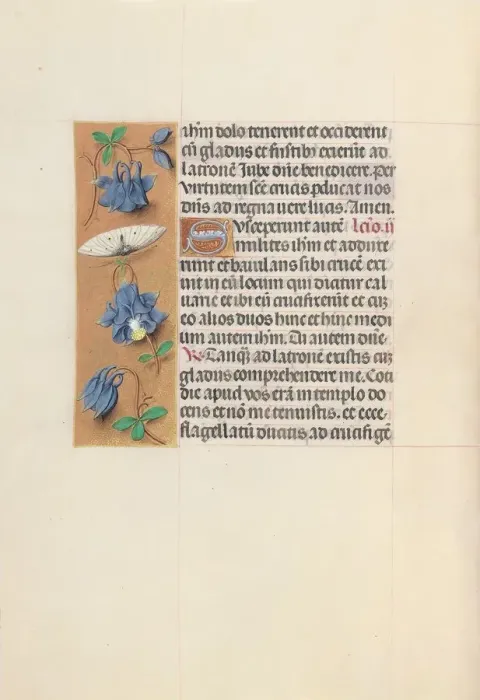 ihm dolo tenerent et occiderent
cū gladiis et fustib; exierūt ad
latronē Jube dn̄e benedicere. Per
virtutem scē crucis p̱ducat nos
dn̄s ad regna vere lucis. Amen.
Susceperunt autē lcīo.ij
milites ihm et adduxe
runt et baiulans sibi crucē exi
uit in eū locum qui dicitur cal
uarie et ibi eū crucifixerūt et cū
eo alios duos hinc et hinc medi
um autem ihm. Tu autem dn̄e.
℟. Tanq̄ ad latronē existis cū
gladiis comprehendere me. Coti
die apud vos erā in templo do
cens et nō me tenuistis. et ecce
flagellatū ducitis ad crucifigē